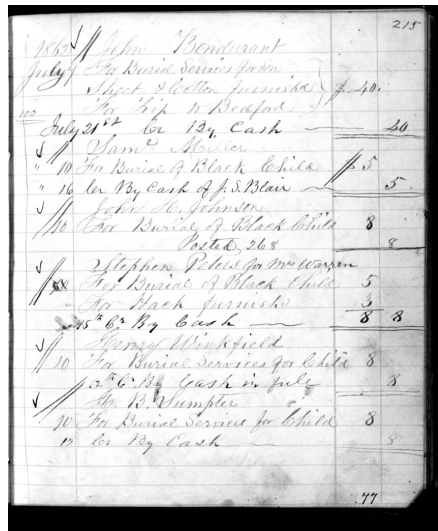 215
1862 John Bondurant
July 9 For Burial Services for son
Sheet & Cotton furnished
For Trip to Bedford } $40.
103
July 21st Cr By Cash 40
Saml Miller
" 10 For Burial of Black Child $5
" 16 Cr By Cash of J. S. Blair 5.
John H. Johnson
10 For Burial of Black Child 8
Posted, 268 8
Stephen Peters for Mrs Warren
For Burial of Black Child 5
For Hack furnishd 3
15th Cr By Cash 8 8
Henry Winkfield
10 For Burial Services for Child 8
12th Cr By Cash in full 8
B. Sumpter
10 For Burial Services for Child 8
12 Cr By Cash 8
77